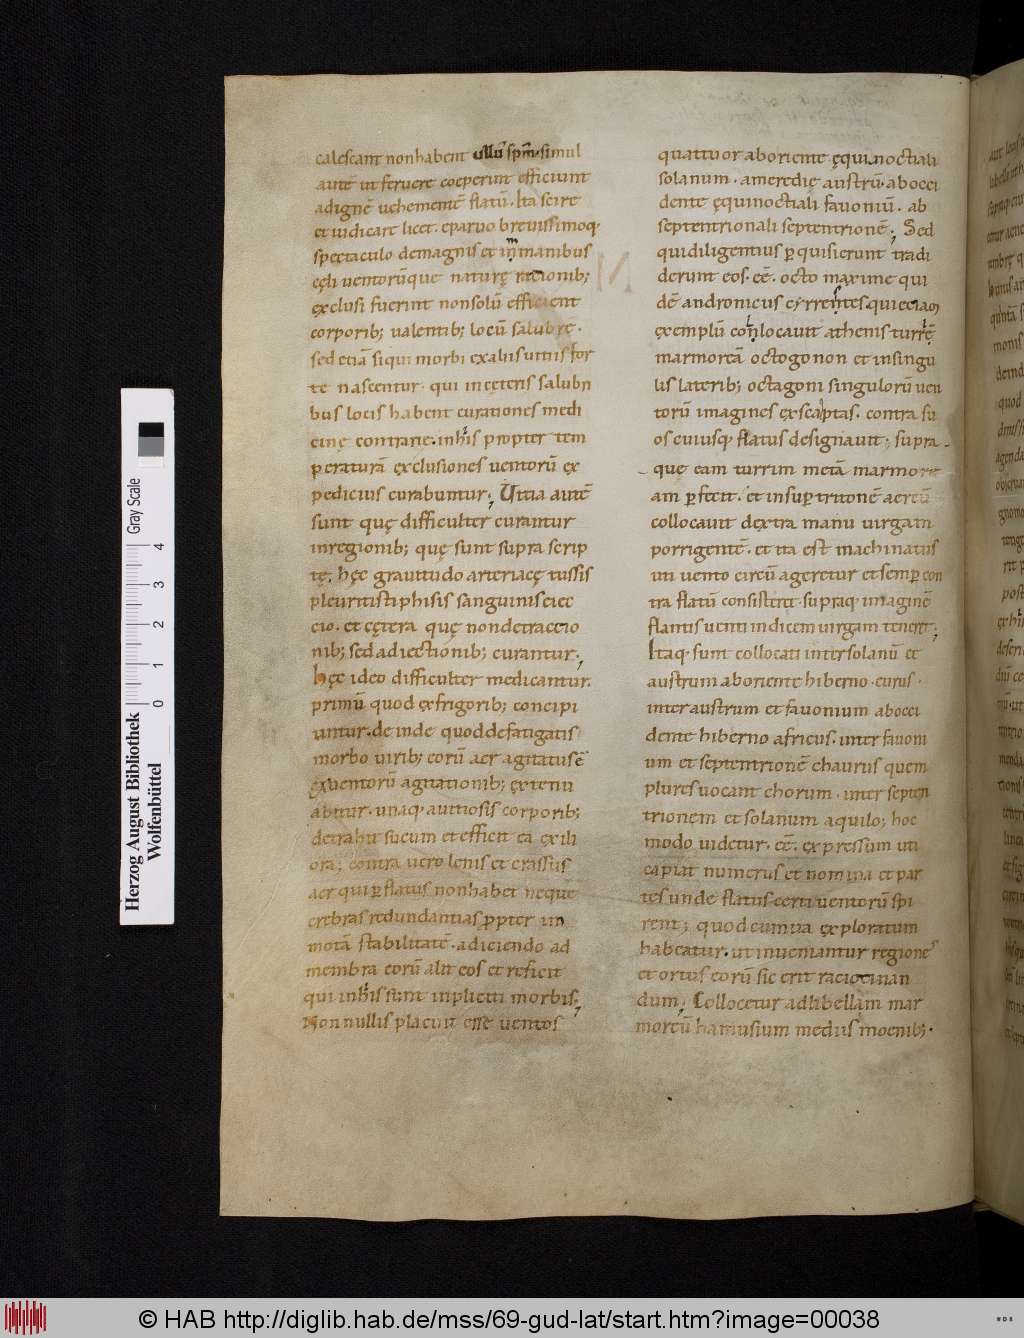 calescant non habent ullũ spm̃. simul
autẽ ut feruere coeperunt efficiunt
ad ignẽ uehementẽ flatũ. Ita scire
et iudicare licet. e paruo breuissimoq;
spectaculo demagnis et inmanibus
cęli uentorũque naturę rationib;
exclusi fuerint non solũ efficient
corporib; ualentib; locũ salubrẽ.
sed etiã si qui morbi ex aliis uitiis for
te nascentur. qui in cęteris salubri
bus locis habent curationes medi
cinę contrarie. in his propter tem
peraturã exclusiones uentorũ ex
pedicius curabuntur; Vitia autẽ
sunt quę difficulter curantur
in regionib; quę sunt supra scrip
tę; hęc grauitudo arteriacę tussis
pleuritis ti phisis sanguinis eiec
cio. et cętera quę non detraccio
nib; sed adiectionib; curantur;
hęc ideo difficulter medicantur.
primũ quod ex frigorib; concipi
untur. deinde quod defatigatis
morbo uirib; eorũ aer agitatus ẽ
ex uentorũ agitationib; extenu
abitur. unaq; a uitiosis corporib;
detrahit sucum et efficit ea exili
ora; contra uero lenis et crassus
aer qui ꝑ flatus non habet neque
crebras redundantias ꝓpter im
motã stabilitatẽ. adiciendo ad
membra eorũ alit eos et reficit
qui in his sunt inpliciti morbis;
Non nullis placuit esse uentos
quattuor ab oriente ęquinoctiali
solanum. a meredie austrũ. ab occi
dente ęquinoctiali fauoniũ. ab
septentrionali septentrionẽ; Sed
qui diligentius ꝑquisierunt tradi
derunt eos. eẽ. octo maxime qui
dẽ andronicus cyrrenstes. qui eciam
exemplũ conlocauit athenis turrẽ
marmoreã octogonon et in singu
lis laterib; octagoni singulorũ uen
torũ imagines exscalptas. contra su
os cuiusq; flatus designauit; supra
que eam turrim metã marmore
am ꝑfecit. et insuꝑ tritonẽ aereũ
collocauit dextra manu uirgam
porrigentẽ. et ita est machinatus
uti uento circũ ageretur et semꝑ con
tra flatũ consisteret. supraq; imaginẽ
flantis uenti indicem uirgam teneret;
Itaq; sunt collocati inter solanũ et
austrum ab oriente hiberno. eurus.
inter austrum et fauonium ab occi
dente hiberno africus. inter fauoni
um et septentrionẽ chaurus quem
plures uocant chorum. inter septen
trionem et solanum aquilo; hoc
modo uidetur. eẽ. expressum uti
capiat numerus et nomina et par
tes unde flatus certi uentorũ spi
rent; quod cum ita exploratum
habeatur. ut inueniantur regiones
et ortus eorũ sic erit raciocinan
dum; Collocetur ad libellam mar
moreũ hamusium mediis moenib;.
Herzog August Bibliothek
Wolfenbüttel
Gray Scale
0 1 2 3 4
© HAB http://diglib.hab.de/mss/69-gud-lat/start.htm?image=00038